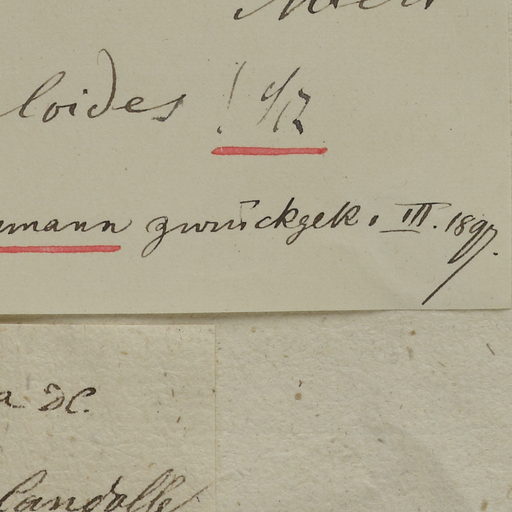 loides !
mann zurückgek. III. 1897.
a DC.
Candolle